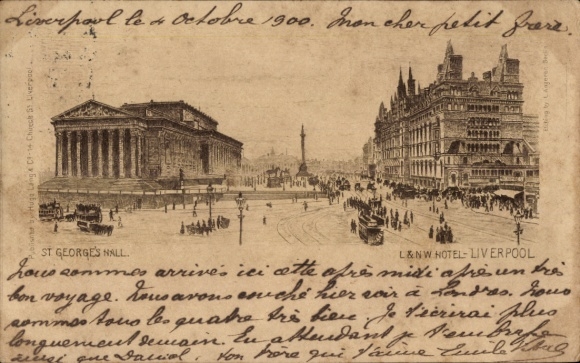 Liverpool le 4 Octobre 1900. Mon cher petit frere.
ST GEORGE'S HALL.
L & N.W. HOTEL - LIVERPOOL
Nous sommes arrivés ici cette après midi après un très
bon voyage. Nous avons couché hier soir à Londres. Nous
sommes tous les quatre très bien. Je t'écrirai plus
longuement demain. En attendant je t'embrasse
ainsi que Daniel. Ton frère qui t'aime Emile